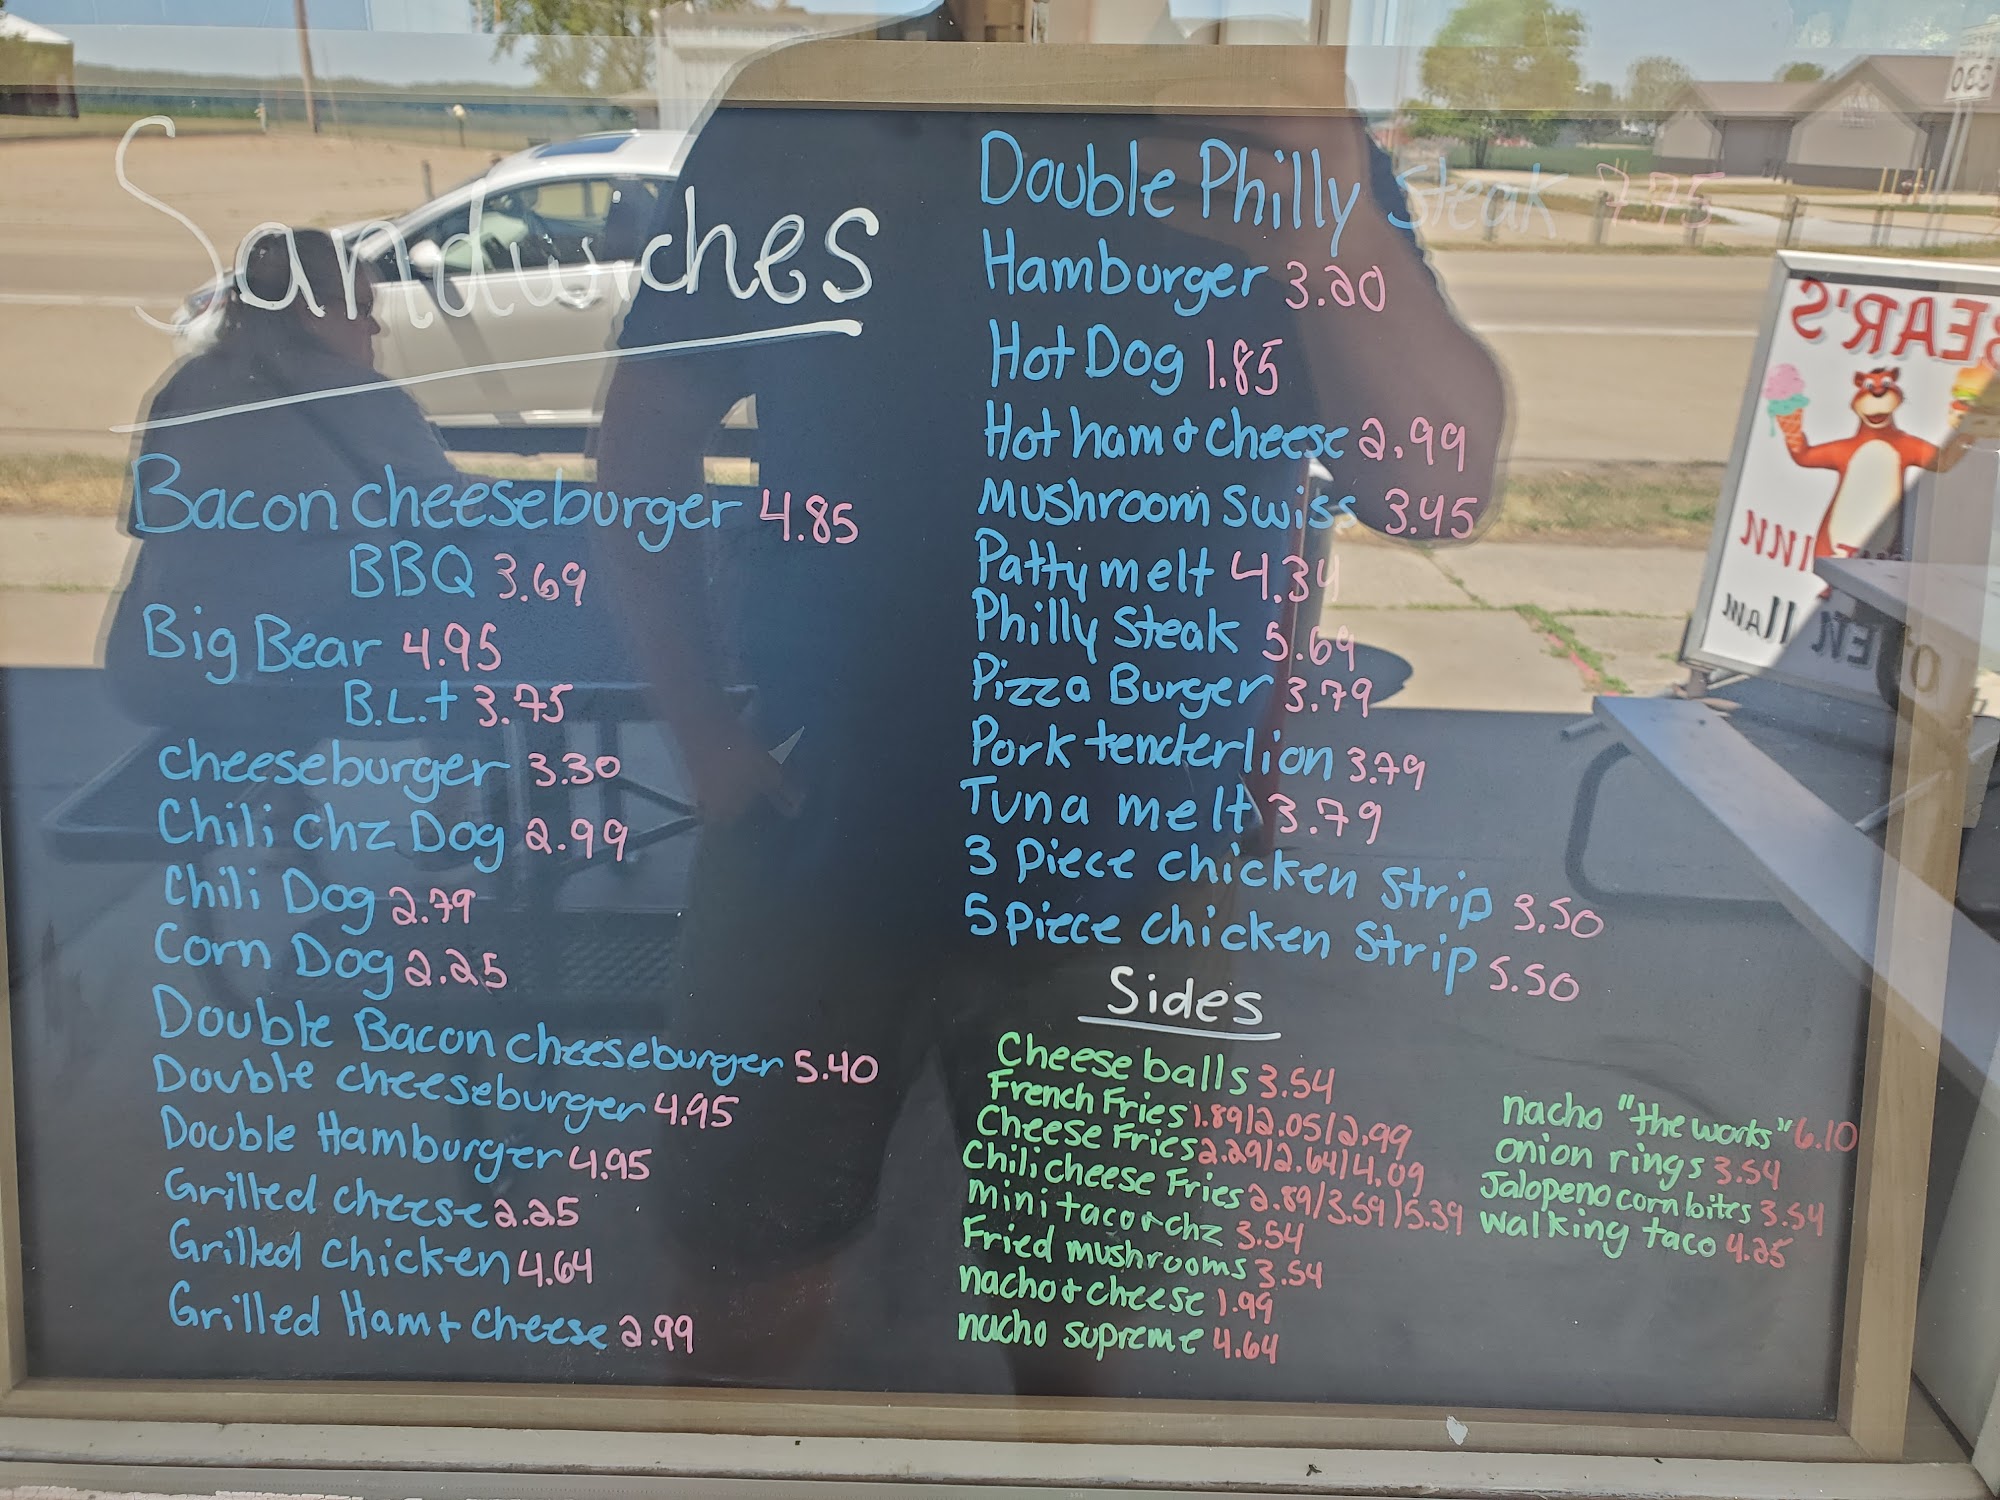 Sandwiches
Bacon cheeseburger 4.85
BBQ 3.69
Big Bear 4.95
B.L.t 3.75
cheeseburger 3.30
Chili chz Dog 2.99
Chili Dog 2.79
Corn Dog 2.25
Double Bacon cheeseburger 5.40
Double cheeseburger 4.95
Double Hamburger 4.95
Grilled cheese 2.25
Grilled chicken 4.64
Grilled Ham + cheese 2.99
Double Philly Steak 7.75
Hamburger 3.20
Hot Dog 1.85
Hot ham + cheese 2.99
Mushroom swiss 3.45
Patty melt 4.34
Philly Steak 5.69
Pizza Burger 3.79
Pork tenderlion 3.79
Tuna melt 3.79
3 piece chicken Strip 3.50
5 piece chicken Strip 5.50
Sides
Cheese balls 3.54
French Fries 1.89/2.05/2.99
Cheese Fries 2.29/2.64/4.09
Chili cheese Fries 2.89/3.59/5.39
mini taco + chz 3.54
Fried mushrooms 3.54
nacho + cheese 1.99
nacho supreme 4.64
nacho "the works" 6.10
onion rings 3.54
Jalopeno corn bites 3.54
walking taco 4.25
BEAR'S
INN
11AM
330